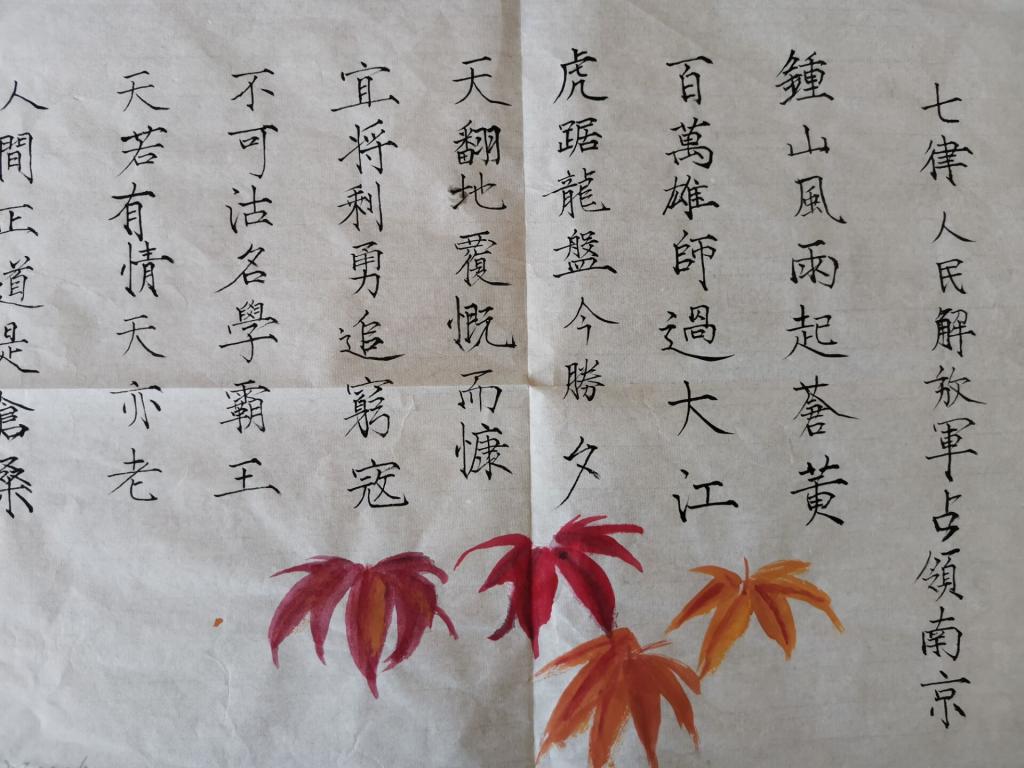 七律 人民解放軍占領南京
鍾山風雨起蒼黃
百萬雄師過大江
虎踞龍盤今勝夕
天翻地覆慨而慷
宜将剩勇追窮寇
不可沽名學霸王
天若有情天亦老
人間正道是滄桑